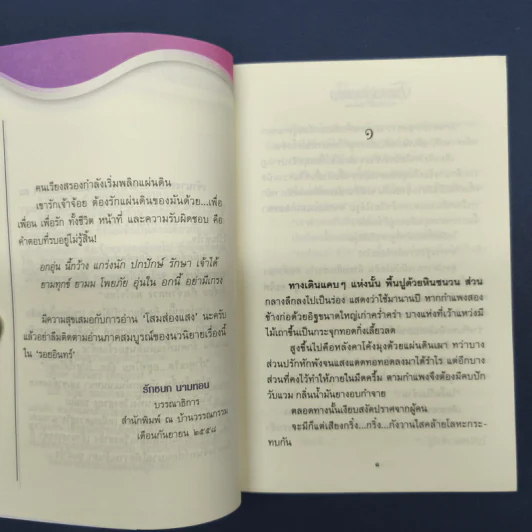 คนเวียงสรองกำลังเริ่มพลิกแผ่นดิน
เขารักเจ้าจ้อย ต้องรักแผ่นดินของมันด้วย...เพื่อ
เพื่อน เพื่อรัก ทั้งชีวิต หน้าที่ และความรับผิดชอบ คือ
คำตอบที่รบอยู่ไม่รู้สิ้น!
อกอุ่น นี้กว้าง แกร่งนัก ปกปักษ์ รักษา เจ้าได้
ยามทุกข์ ยามม โพยภัย อุ่นใน อกนี้ อย่ามีเกรง
มีความสุขเสมอกับการอ่าน 'โสมส่องแสง' นะครับ
แล้วอย่าลืมติดตามอ่านภาคสมบูรณ์ของนวนิยายเรื่องนี้
ใน 'รอยอินทร์'
รักชนก นามทอน
บรรณาธิการ
สำนักพิมพ์ ณ บ้านวรรณกรรม
เดือนกันยายน ๒๕๕๘
๑
ทางเดินแคบๆ แห่งนั้น พื้นปูด้วยหินชนวน ส่วน
กลางลึกลงไปเป็นร่อง แสดงว่าใช้มานานปี หากกำแพงสอง
ข้างก่อด้วยอิฐขนาดใหญ่เก่าคร่ำคร่า บางแห่งที่เว้าแหว่งมี
ไม้เถาขึ้นเป็นกระจุกทอดกิ่งเลี้ยวลด
สูงขึ้นไปคือหลังคาโค้งมุงด้วยดินเผา ทว่าบาง
ส่วนปรักหักพังจนแสงแดดทอทอดลงมาได้รำไร แต่อีกบาง
ส่วนที่คงไว้ทำให้ภายในมืดครึ้ม ตามกำแพงจึงต้องมีคบปัก
วับแวม กลิ่นน้ำมันยางอบกำจาย
ตลอดทางนั้นเงียบสงัดปราศจากผู้คน
จะมีก็แต่เสียงกริ๋ง...กริ๋ง...กังวานใสคล้ายโลหะกระ-
ทบกัน
๑